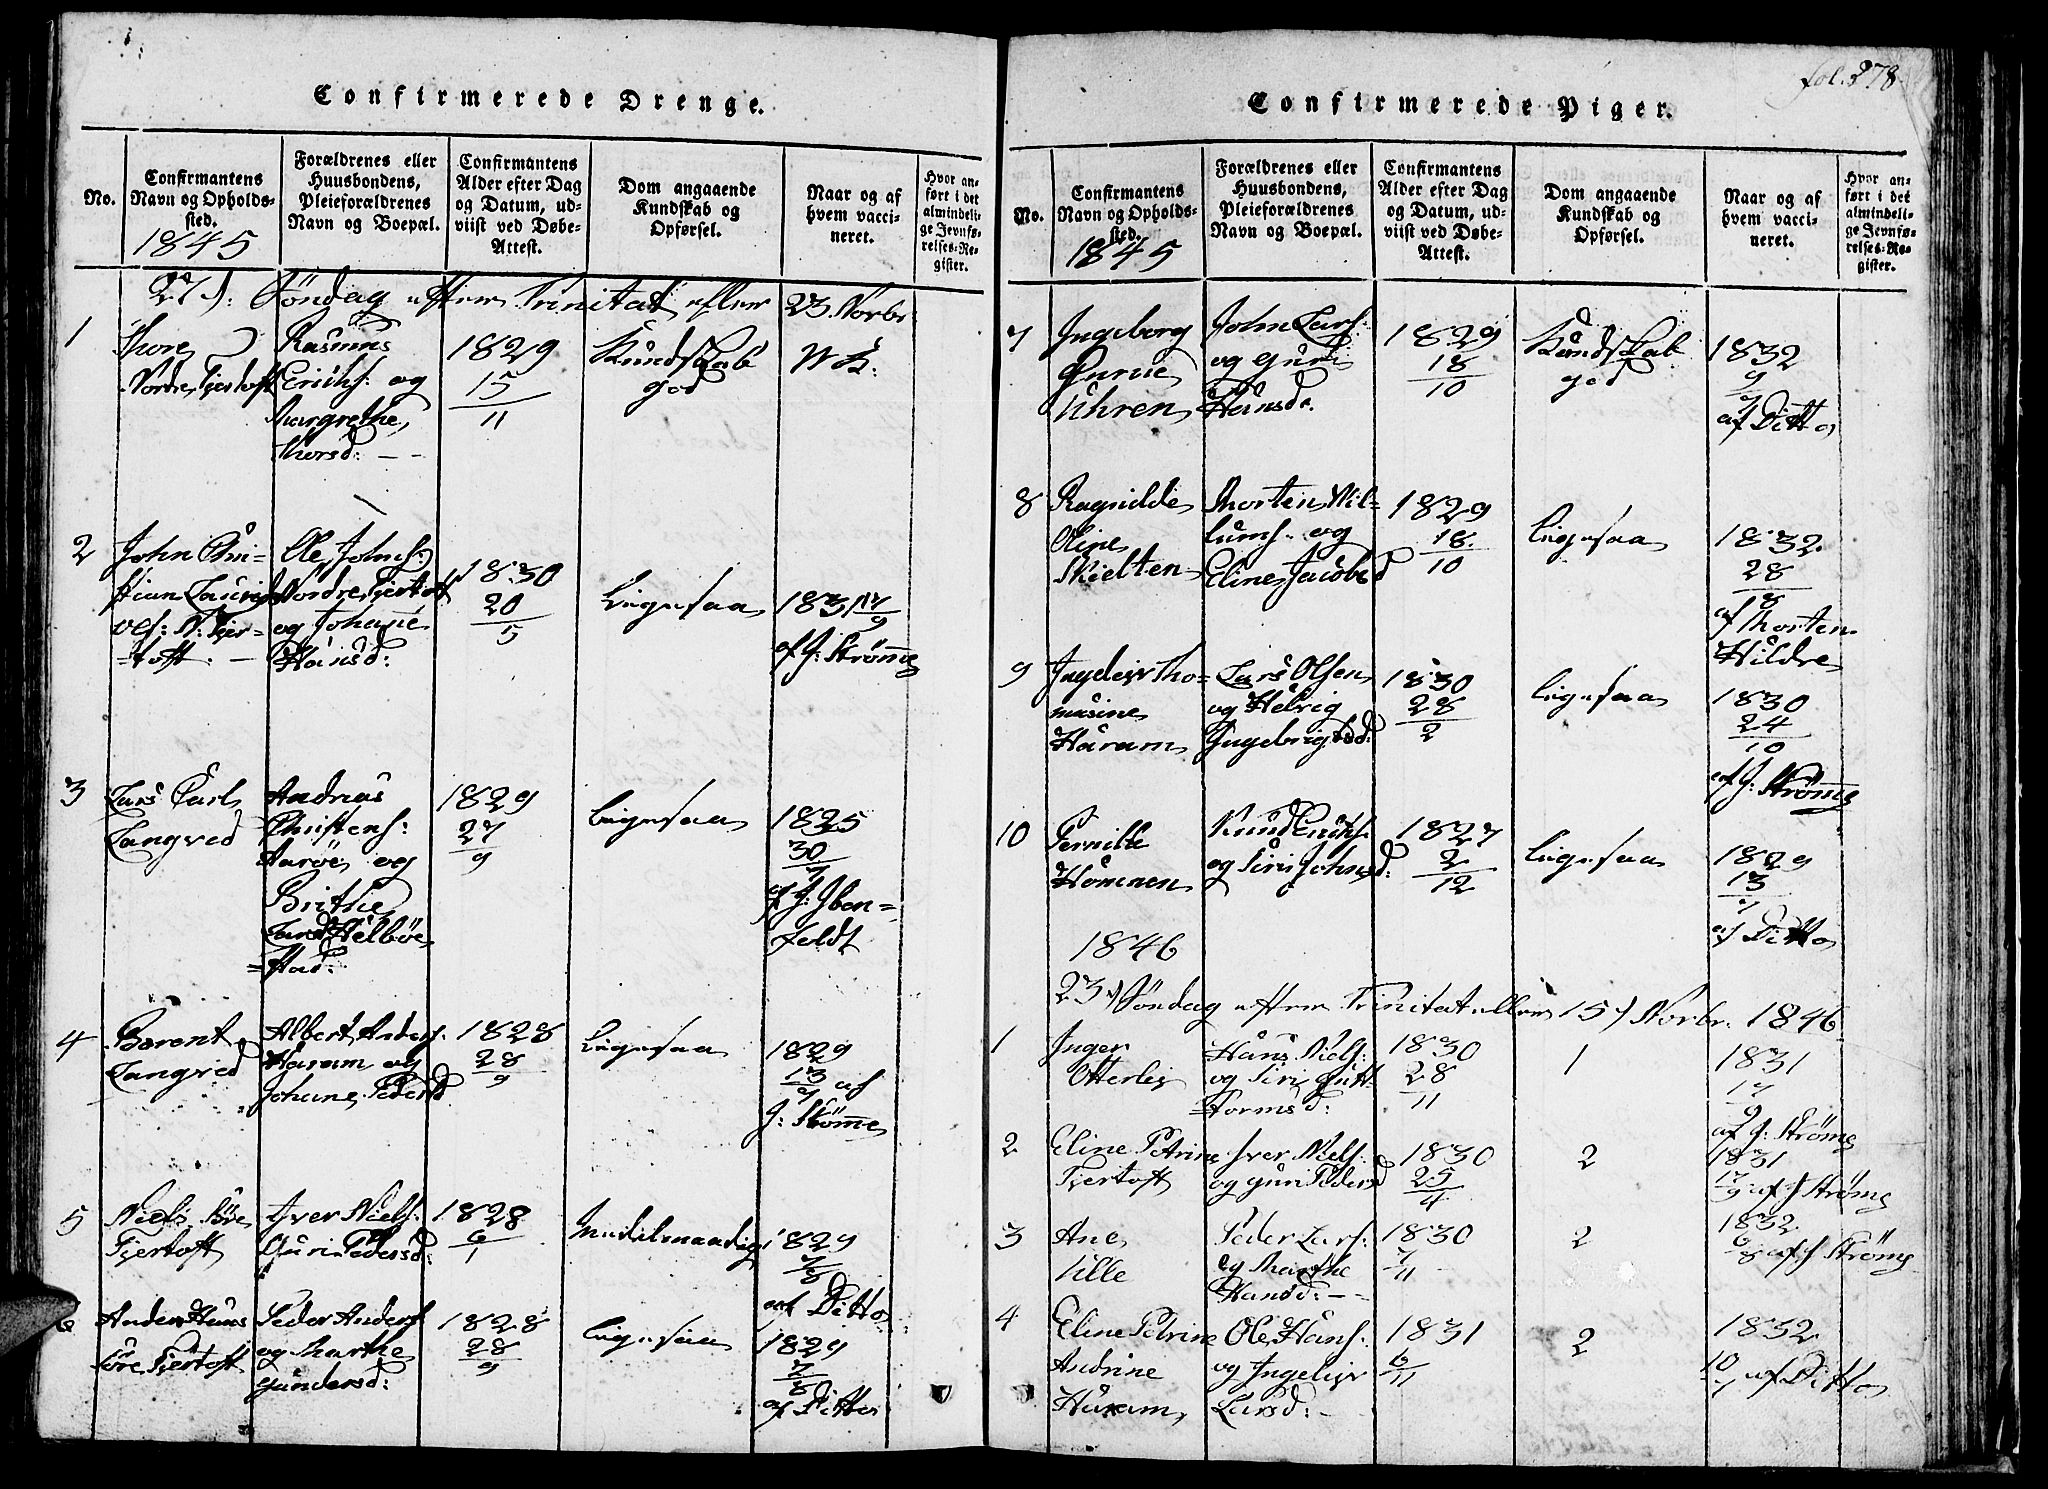 Confirmerede Drenge.
No.
Confirmantens
Navn og Opholds-
sted.
1845
Forældrenes eller
Huusbondens,
Pleieforældrenes
Navn og Boepæl.
Confirmantens
Alder efter Dag
og Datum, ud-
viist ved Døbe-
Attest.
Dom angaaende
Kundskab og
Opførsel.
Naar og af
hvem vacci-
neret.
Hvor an-
ført i det
almindeli-
ge Jevnfø-
relses-Re-
gister.
27): Söndag efter Trinitat eller 23 Novbr:
1
Thore
Nordre Fjertoft
Rasmus
Erichs: og
Margrethe
Thorsd: - -
1829
15
11
Kundskab
god
2
John Chri-
stian Laurids
Ols: N: Fjer-
=toft. -
Ole Johns:
Nordre Fjertoft
og Johanne
Hansd:
1830
20
5
Ligesaa
1831 17
9
af J: Strømme
3
Lars Carl
Langved
Andreas
Christens:
Aaröe og
Brithe
Larsd Helböe
=stad:
1829
27
9
Ligesaa
1825
30
7
af J: Iben=
feldt
4
Barent
Langved
Albert Anders:
Haram og
Johane Pedersd
1828
28
9
Ligesaa
1829
13 af
7
J: Strömme
5
Niels Söre
Fjertoft
Iver Niels:
Guri Pedersd:
1828
6
1
Middelmaadig
1829
7
8
af Ditto
6
Anders Hans
söre Fjertoft
Peder Anders
og Marthe
Gundersd:
1828
28
9
Ligesaa
1829
7
8
af Ditto
fol. 278
Confirmerede Piger.
No.
Confirmantens
Navn og Opholds-
sted.
1845
Forældrenes eller
Huusbondens,
Pleieforældrenes
Navn og Boepæl.
Confirmantens
Alder efter Dag
og Datum, ud-
viist ved Døbe-
Attest.
Dom angaaende
Kundskab og
Opførsel.
Naar og af
hvem vacci-
neret.
Hvor an-
ført i det
almindeli-
ge Jevnfø-
relses-Re-
gister.
7
Ingeborg
Gurine
Uhren
John Lars:
og Guri
Hansd.
1829
18
10
Kundskab
god
1832
9
7
af Ditto
8
Ragnilde
Oline
Skielten
Morten Wil-
lums. og
Eline Jacobsd
1829
18
10
Ligesaa
1832
28
8
af Morten
Hildre
9
Ingeleiv Tho=
masine
Haram
Lars Olsen
og Helvig
Ingebrigtsd:
1830
28
2
Ligesaa
1830
24
10
af J: Strømme
10
Pernille
Hommen
Knud Erichs.
og Siri Johnsd:
1827
2
12
Ligesaa
1829
13
7
af Ditto
1846
23) Söndag efter Trinitat eller 15) Novbr. 1846
1
Inger
Otterlei
Hans Niels:
og Siri Gutt
=formsd:
1830
28
11
1
1831
17
9
af J: Strömme
2
Eline Petrine
Fjertoft
Iver Niels:
og Guri Pedersd
1830
25
4
2
1831
17
9 af J Strömme
3
Ane
Ulle
Peder Lars:
og Marthe
Hansd: - -
1830
7
11
2
1832
6
8 af J Strömme
4
Eline Petrine
Andrine
Haram
Ole Hans:
og Ingeleiv
Larsd: -
1831
6
11
2
1832
10
7 af Ditto